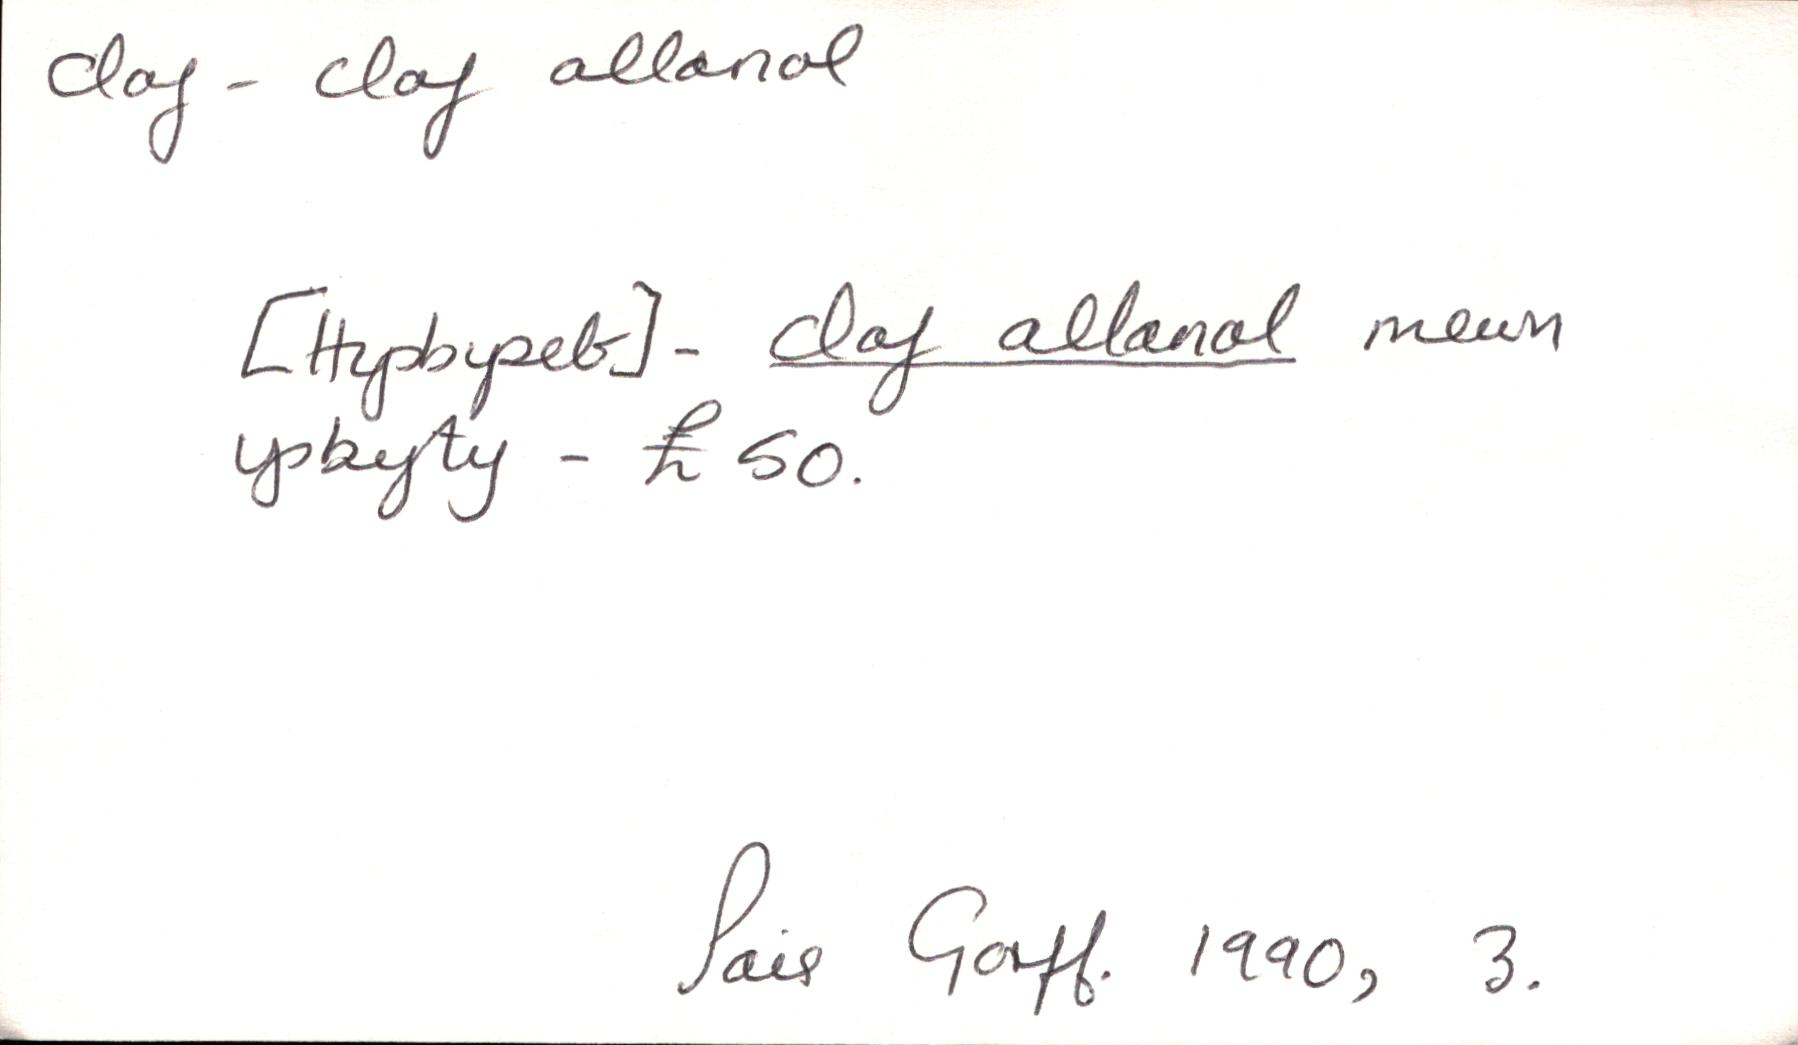 claf - claf allanol
[Hysbyseb] - claf allanol mewn
ysbyty - £50.
Pais Gorff. 1990, 3.